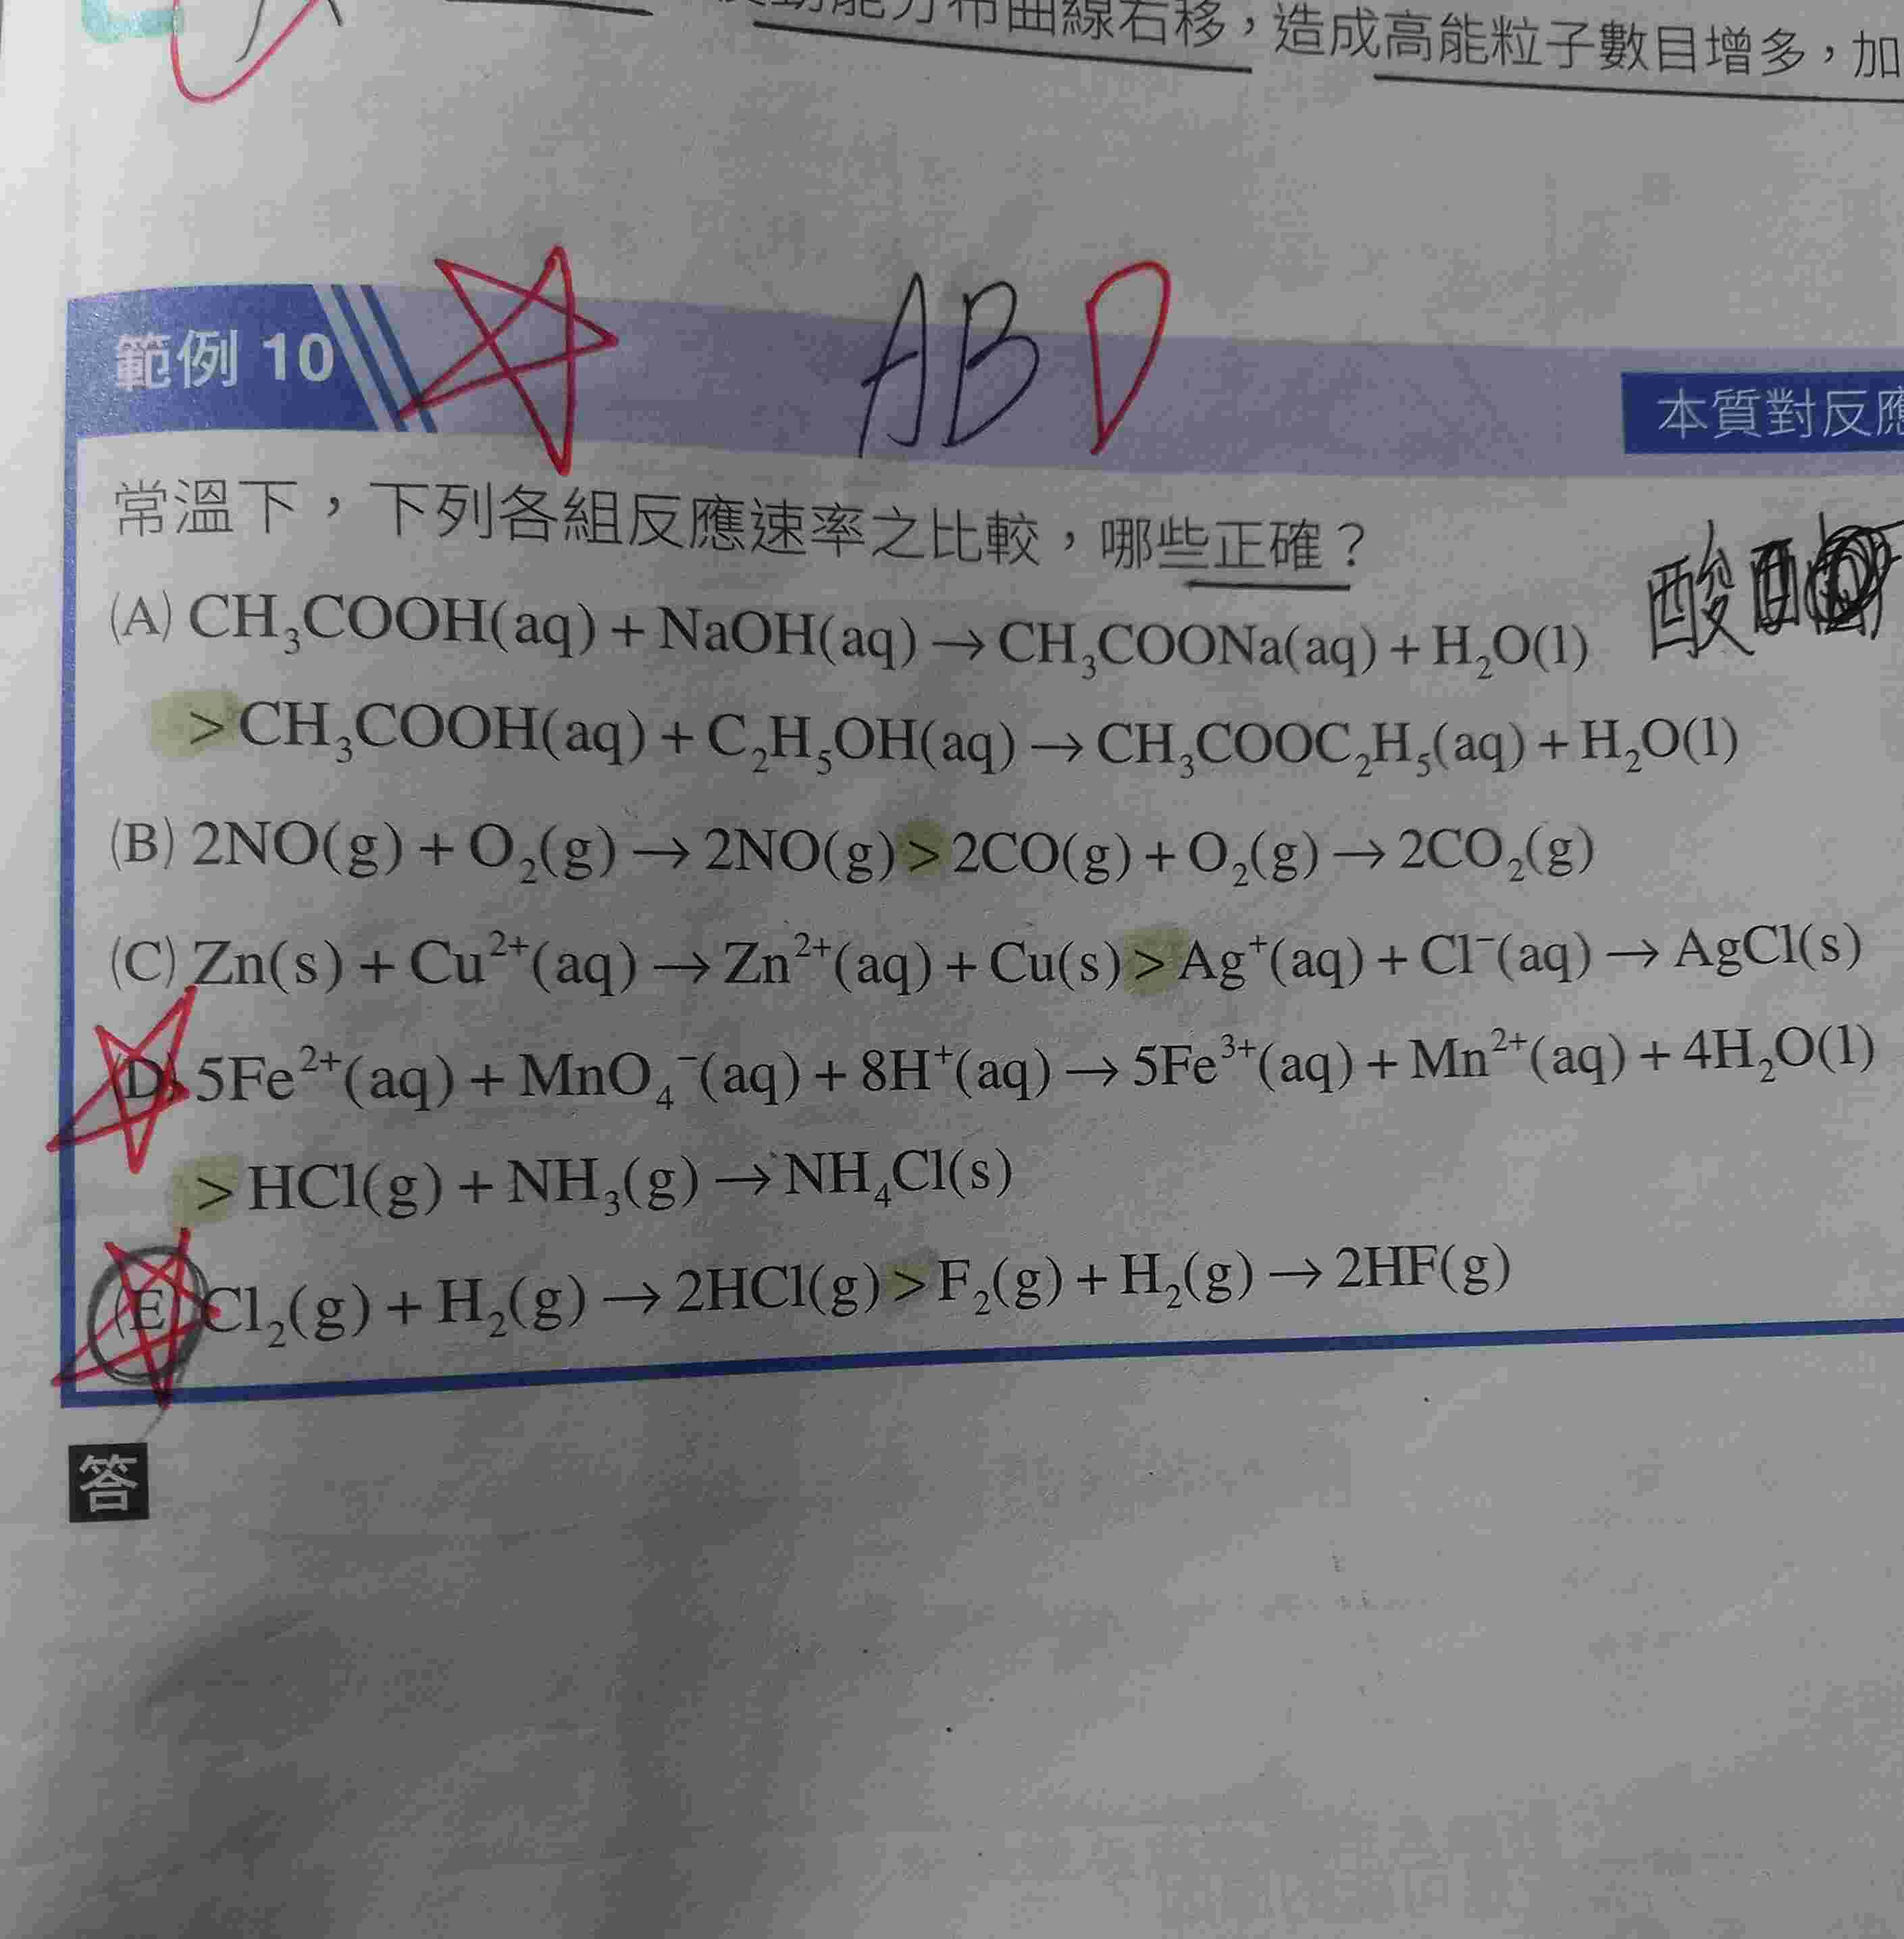 動能分布曲線右移，造成高能粒子數目增多，加
範例 10
ABD
本質對反應
常溫下，下列各組反應速率之比較，哪些正確？
酸
(A) CH₃COOH(aq) + NaOH(aq) → CH₃COONa(aq) + H₂O(l)
> CH₃COOH(aq) + C₂H₅OH(aq) → CH₃COOC₂H₅(aq) + H₂O(l)
(B) 2NO(g) + O₂(g) → 2NO(g) > 2CO(g) + O₂(g) → 2CO₂(g)
(C) Zn(s) + Cu²⁺(aq) → Zn²⁺(aq) + Cu(s) > Ag⁺(aq) + Cl⁻(aq) → AgCl(s)
(D) 5Fe²⁺(aq) + MnO₄⁻(aq) + 8H⁺(aq) → 5Fe³⁺(aq) + Mn²⁺(aq) + 4H₂O(l)
> HCl(g) + NH₃(g) → NH₄Cl(s)
(E) Cl₂(g) + H₂(g) → 2HCl(g) > F₂(g) + H₂(g) → 2HF(g)
答